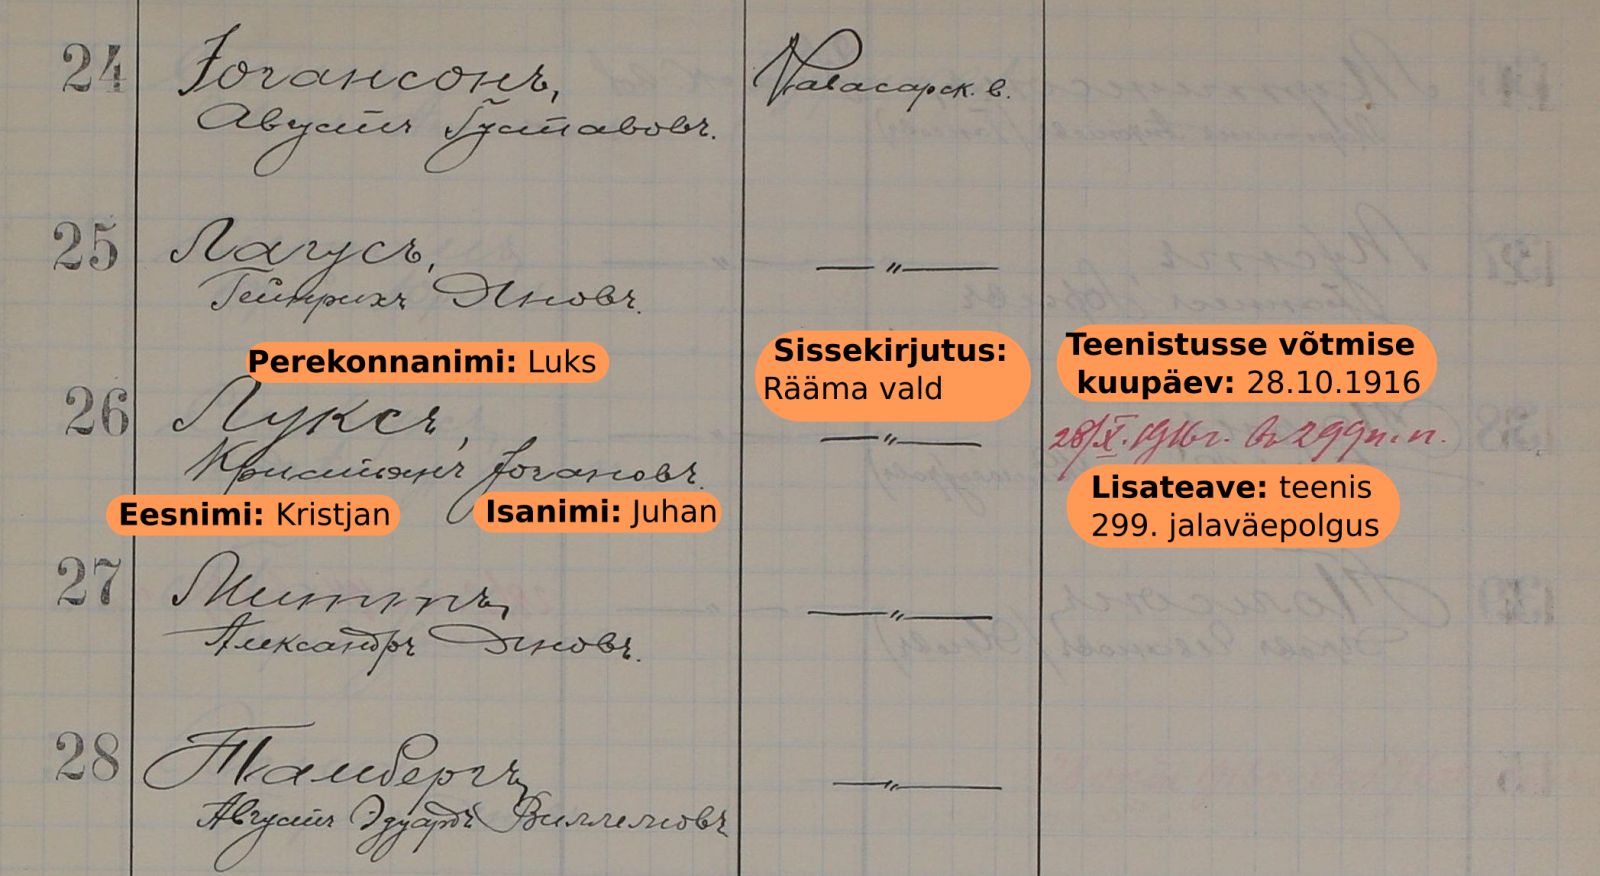 24 Іогансонъ, Кавасарск. в.
Августъ Густавовъ.
25 Лагусъ, — „ —
Гейнрихъ Яновъ.
Perekonnanimi: Luks
Sissekirjutus:
Rääma vald
Teenistusse võtmise
kuupäev: 28.10.1916
26 Луксъ, — „ — 28/X. 1916 г. въ 299 п. п.
Кристьянъ Іогановъ.
Eesnimi: Kristjan
Isanimi: Juhan
Lisateave: teenis
299. jalaväepolgus
27 — „ —
Александръ Яновъ.
28 Тамбергъ, — „ —
Августъ Эдуардъ Виллемовъ